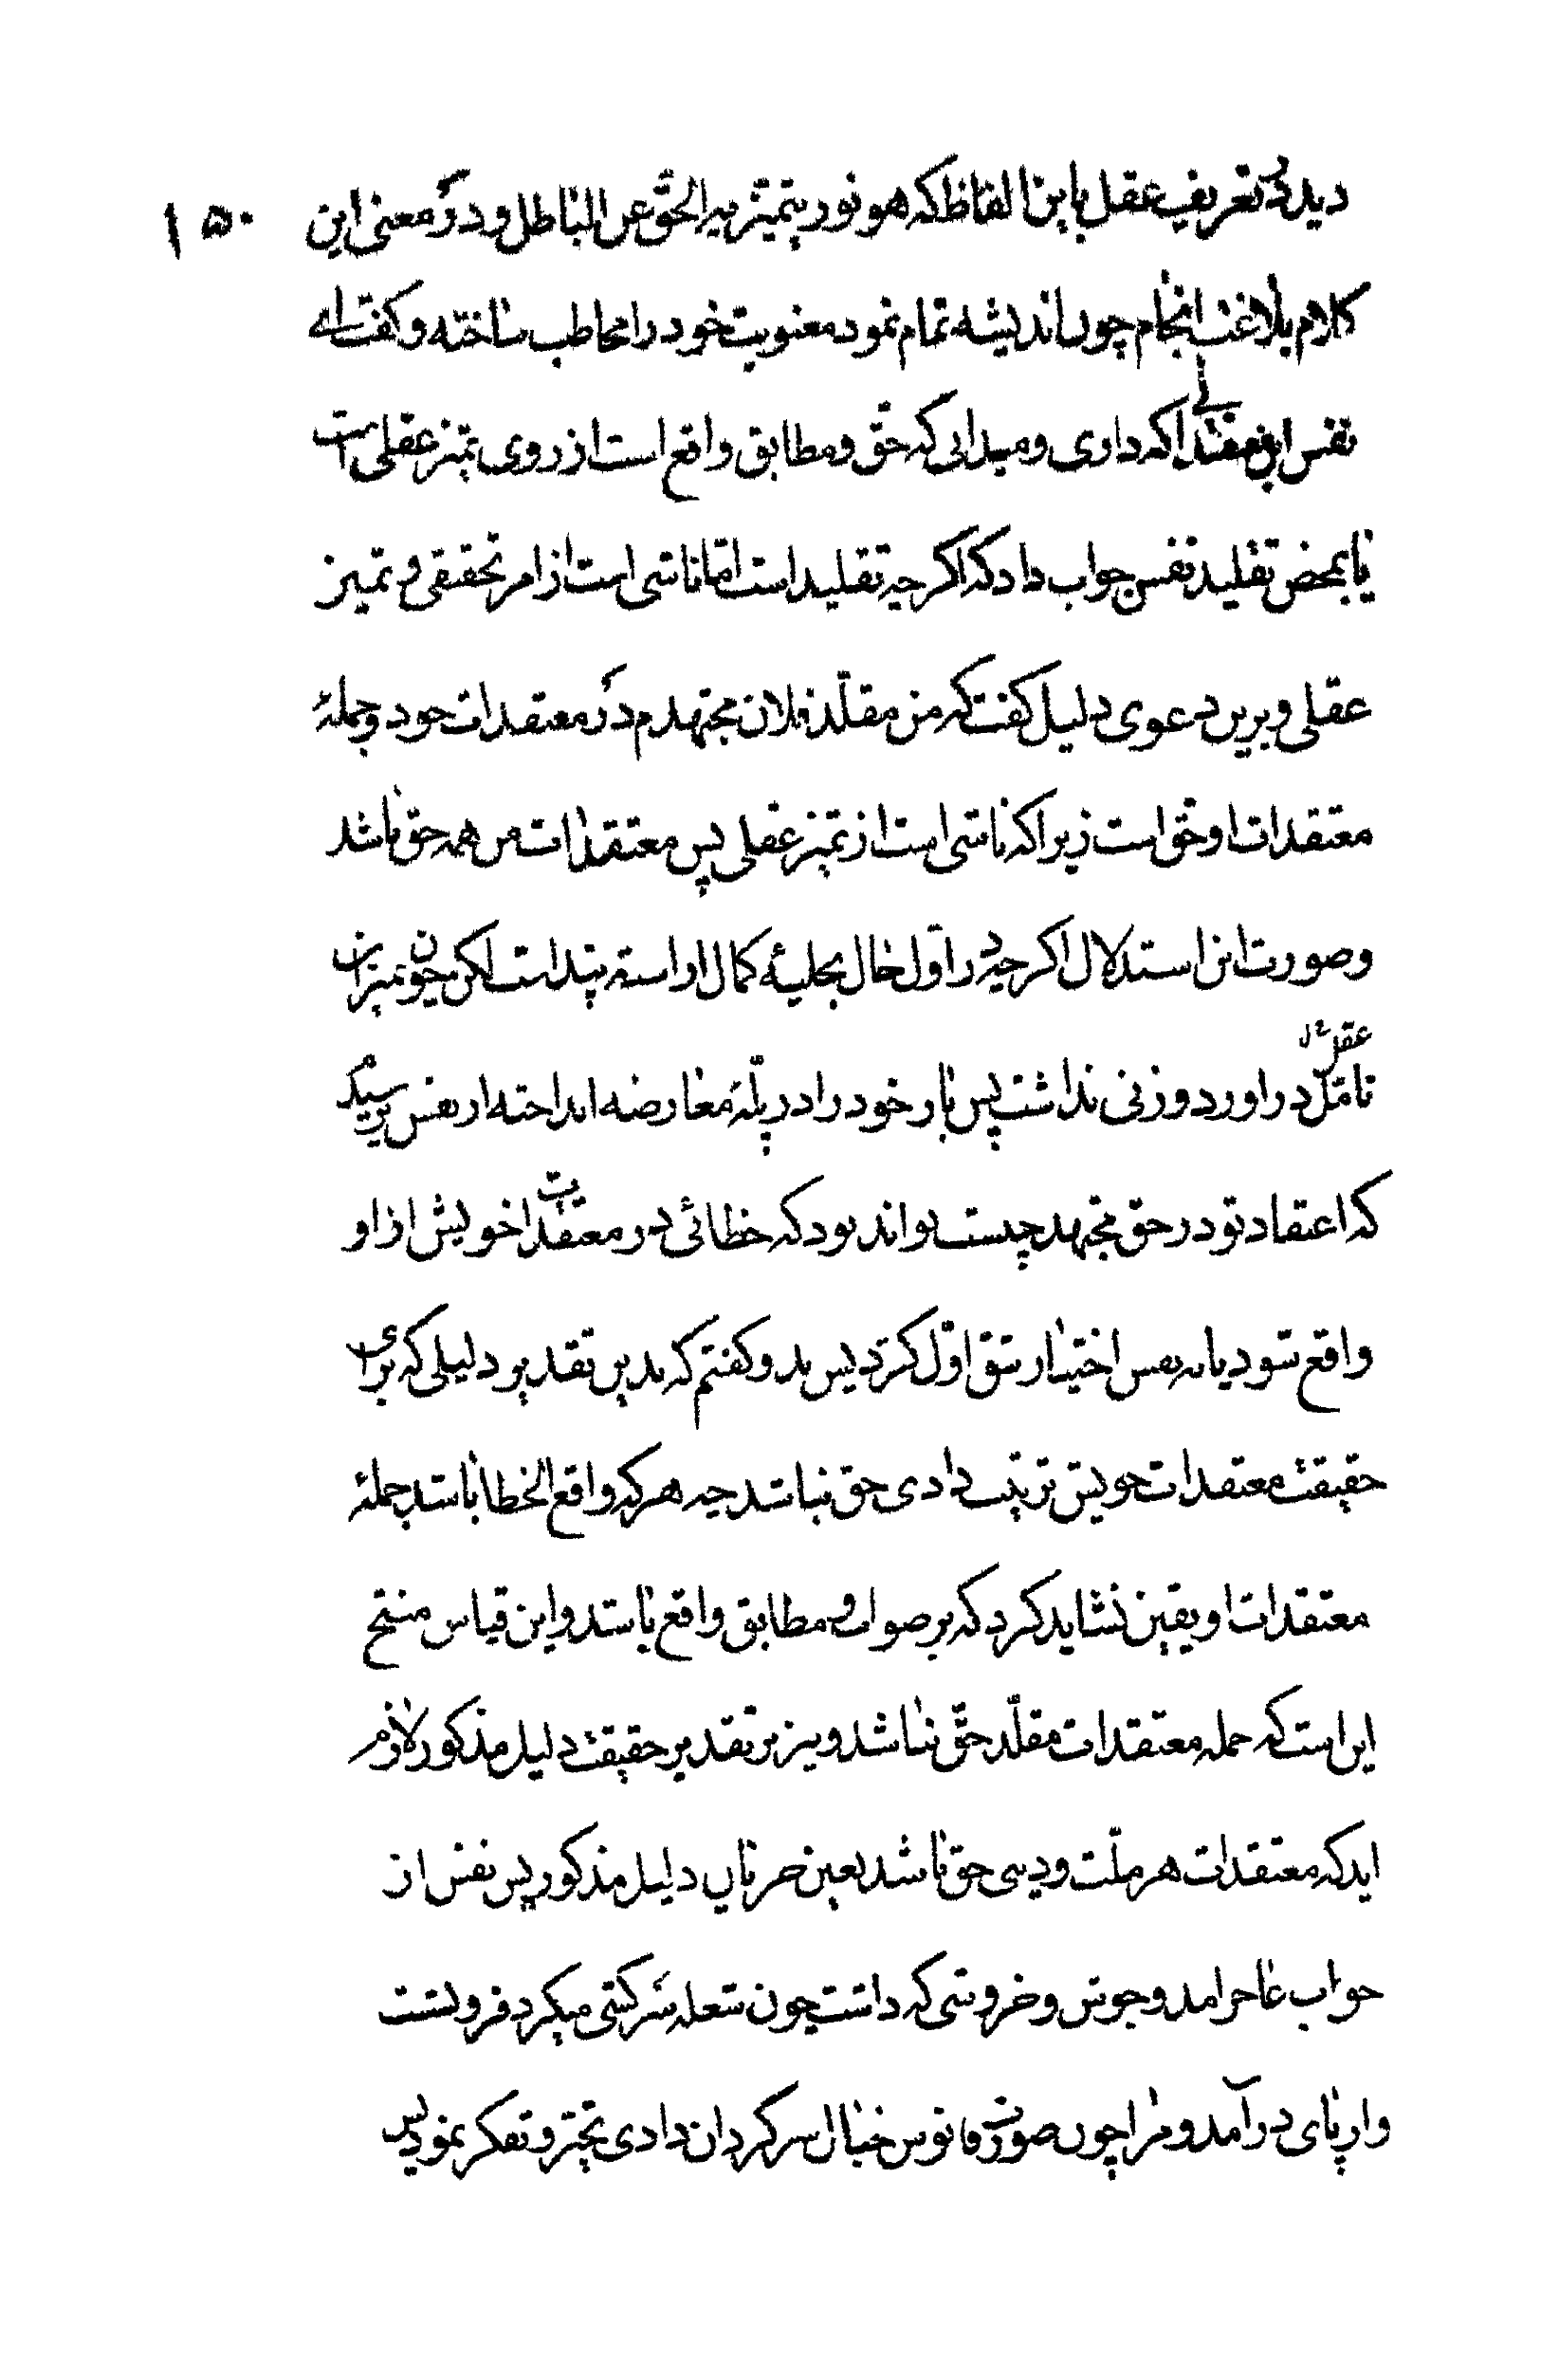 دید در تعریف عقل باین الفاظ که هو نور یتمیّز به الحقّ عن الباطل و در معنی این ۱۵۰
کلام بلاغت انجام چون اندیشه تمام نمود معنویت خود را مخاطب ساخته و کفت ای
نفس این معتقداتی که داری و میدانی که حقّ و مطابق واقع است از روی تمیز عقلی است
یا بمحض تقلید نفس جواب داد که اکرچه تقلید است امّا ناشی است از امر تحقیقی و تمیز
عقلی و برین دعوی دلیل کفت که من مقلّد فلان مجتهدم در معتقدات خود و جملهٔ
معتقدات او حقّ است زیرا که ناشی است از تمیز عقلی پس معتقدات من همه حق باشد
و صورت این استدلال اکرچه در اوّل حال بحلیهٔ کمال اراسته دید است لکن چون میزان
عقل تامّل در اورد وزنی نداشت پس بار خود را در پلّهٔ معارضه انداخته از نفس پرسید
که اعتقاد تو در حق مجتهد چیست تواند بود که خطائی در معتقدات خویش از او
واقع شود یا نه نفس اختیار شق اوّل کرد پس بدو کفتم که بدین تقدیر دلیلی که برای
حقیقت معتقدات خویش ترتیب دادی حق نباشد چه هر که واقع الخطا باشد بجملهٔ
معتقدات او یقین نشاید کرد که بر صواب و مطابق واقع باشد و این قیاس منتج
این است که جمله معتقدات مقلّد حقّ نباشد و نیز بر تقدیر حقیقت دلیل مذکور لازم
اید که معتقدات هر ملّت و دینی حق باشد بعین جریان دلیل مذکور پس نفس از
جواب عاجز امد و جوش و خروشی که داشت چون شعله سرکشی میکرد فرو نشست
و از پای در آمد و مرا چون صورت فانوس خیال سرکردان وادی تحیّر و تفکر نمود پس